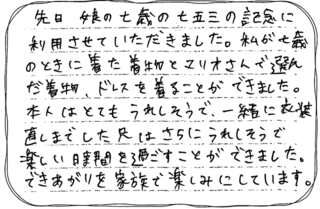 先日 娘の七歳の七五三の記念に
利用させていただきました。私が七歳
のときに着た着物とスリオさんで選ん
だ着物、ドレスを着ることができました。
本人はとてもうれしそうで、一緒に衣装
直しまでした兄はさらにうれしそうで
楽しい時間を過ごすことができました。
できあがりを家族で楽しみにしています。